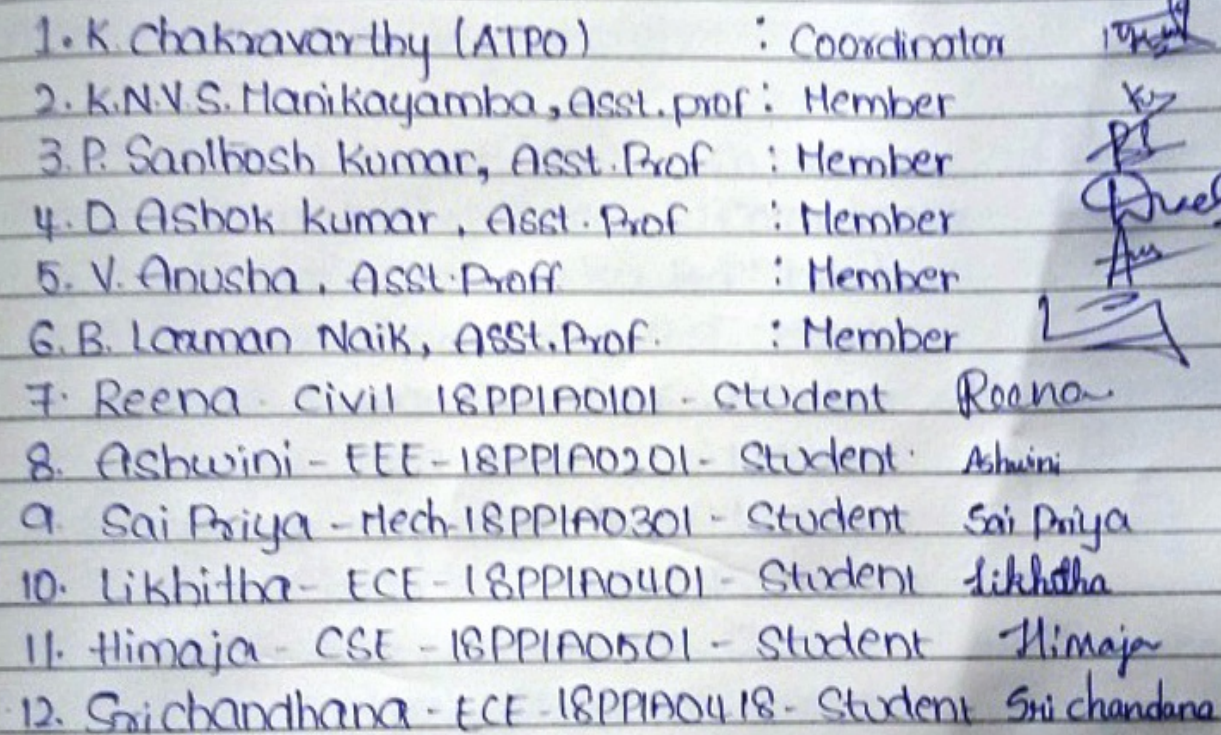 1. K. Chakravarthy (ATPO) : Coordinator
2. K.N.V.S. Manikayamba, Asst. prof : Member
3. P. Santhosh Kumar, Asst. Prof : Member
4. D. Ashok kumar, Asst. Prof : Member
5. V. Anusha, Asst. Proff : Member
6. B. Laxman Naik, Asst. Prof. : Member
7. Reena - Civil 18PP1A0101 - Student Reena
8. Ashwini - EEE - 18PP1A0201 - Student Ashwini
9. Sai Priya - Mech - 18PP1A0301 - Student Sai Priya
10. Likhitha - ECE - 18PP1A0401 - Student Likhitha
11. Himaja - CSE - 18PP1A0501 - Student Himaja
12. Srichandhana - ECE - 18PP1A0418 - Student Sri chandana